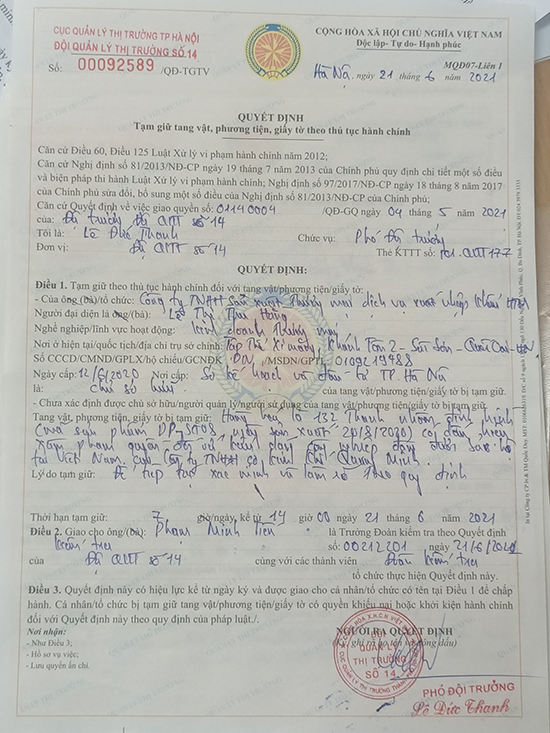 CỤC QUẢN LÝ THỊ TRƯỜNG TP HÀ NỘI
ĐỘI QUẢN LÝ THỊ TRƯỜNG SỐ 14
Số: 00092589 /QĐ-TGTV
CỘNG HÒA XÃ HỘI CHỦ NGHĨA VIỆT NAM
Độc lập- Tự do- Hạnh phúc
MQĐ07-Liên 1
Hà Nội, ngày 21 tháng 6 năm 2021
QUYẾT ĐỊNH
Tạm giữ tang vật, phương tiện, giấy tờ theo thủ tục hành chính
Căn cứ Điều 60, Điều 125 Luật Xử lý vi phạm hành chính năm 2012;
Căn cứ Nghị định số 81/2013/NĐ-CP ngày 19 tháng 7 năm 2013 của Chính phủ quy định chi tiết một số điều
và biện pháp thi hành Luật Xử lý vi phạm hành chính; Nghị định số 97/2017/NĐ-CP ngày 18 tháng 8 năm 2017
của Chính phủ sửa đổi, bổ sung một số điều của Nghị định số 81/2013/NĐ-CP của Chính phủ;
Căn cứ Quyết định về việc giao quyền số: 01140004 /QĐ-GQ ngày 04 tháng 5 năm 2021
của: Đội trưởng Đội QLTT số 14
Tôi là: Lê Đức Thanh Chức vụ: Phó Đội trưởng
Đơn vị: Đội QLTT số 14 Thẻ KTTT số:
QUYẾT ĐỊNH:
Điều 1. Tạm giữ theo thủ tục hành chính đối với tang vật/phương tiện/giấy tờ:
- Của ông (bà)/tổ chức: Công ty TNHH sản xuất thương mại dịch vụ xuất nhập khẩu
Người đại diện là ông/(bà): Thị Thu Hằng
Nghề nghiệp/lĩnh vực hoạt động: kinh doanh thương mại
Nơi ở hiện tại/quốc tịch/địa chỉ trụ sở chính: Tập thể Xi măng, Khánh Tân 2 - Sài Sơn - Quốc Oai - HN
Số CCCD/CMND/GPLX/hộ chiếu/GCNĐK ĐN /MSDN/GPTL 0109219988
Ngày cấp: 12/6/2020 Nơi cấp: Sở kế hoạch và đầu tư TP. Hà Nội
là: chủ sở hữu của tang vật/phương tiện/giấy tờ bị tạm giữ.
- Chưa xác định được chủ sở hữu/người quản lý/người sử dụng của tang vật/phương tiện/giấy tờ bị tạm giữ.
Tang vật, phương tiện, giấy tờ bị tạm giữ: Hàng hóa là 132 Thanh nhôm định hình
(mã sản phẩm, ngày sản xuất 20/8/2020) có dấu hiệu
xâm phạm quyền đối với kiểu dáng công nghiệp đang được bảo hộ
tại Việt Nam của Công ty TNHH
Lý do tạm giữ: Để tiếp tục xác minh và làm rõ theo quy định
Thời hạn tạm giữ: 7 giờ/ngày, kể từ 14 giờ 00 ngày 21 tháng 6 năm 2021
Điều 2. Giao cho ông/(bà): Phạm Minh Tiến là Trưởng Đoàn kiểm tra theo Quyết định
kiểm tra số: 00212201 ngày 21/6/2021
của Đội QLTT số 14 cùng với các thành viên Đoàn kiểm tra
tổ chức thực hiện Quyết định này.
Điều 3. Quyết định này có hiệu lực kể từ ngày ký và được giao cho cá nhân/tổ chức có tên tại Điều 1 để chấp
hành. Cá nhân/tổ chức bị tạm giữ tang vật/phương tiện/giấy tờ có quyền khiếu nại hoặc khởi kiện hành chính
đối với Quyết định này theo quy định của pháp luật./.
Nơi nhận:
- Như Điều 3;
- Hồ sơ vụ việc;
- Lưu quyển ấn chỉ.
NGƯỜI RA QUYẾT ĐỊNH
ĐỘI
QUẢN LÝ
THỊ TRƯỜNG
SỐ 14
PHÓ ĐỘI TRƯỞNG
Lê Đức Thanh